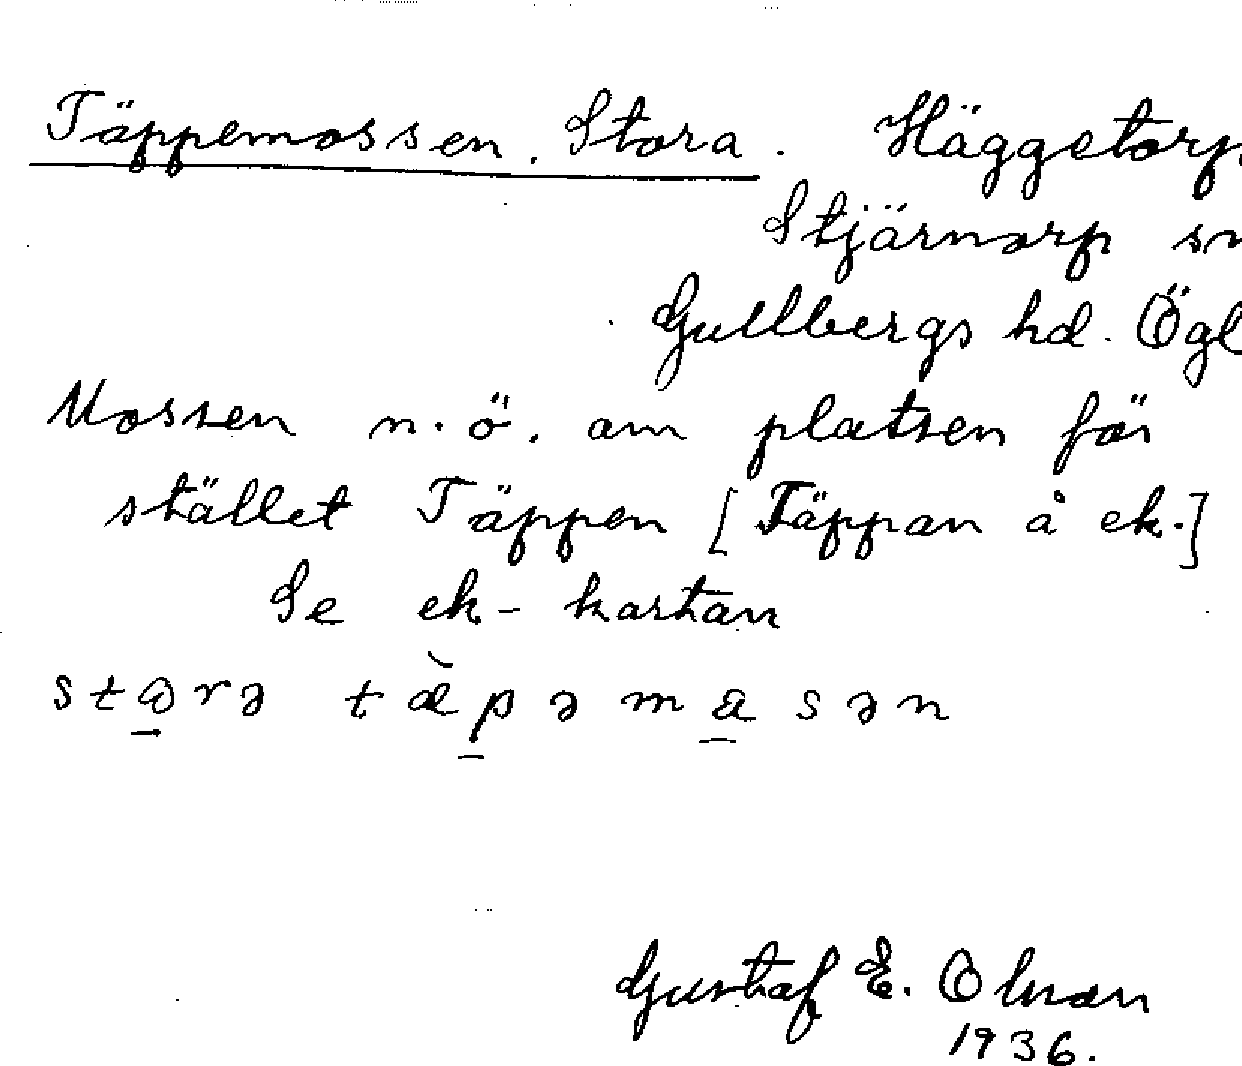 Täppemossen, Stora. Häggetorp,
Stjärnorp sn
Gullbergs hd. Ögl
Mossen n.ö. om platsen för
stället Täppen [Täppan å ek.]
Se ek-kartan
stɷrə tæ̀pəmasən
Gustaf E. Olsson
1936.